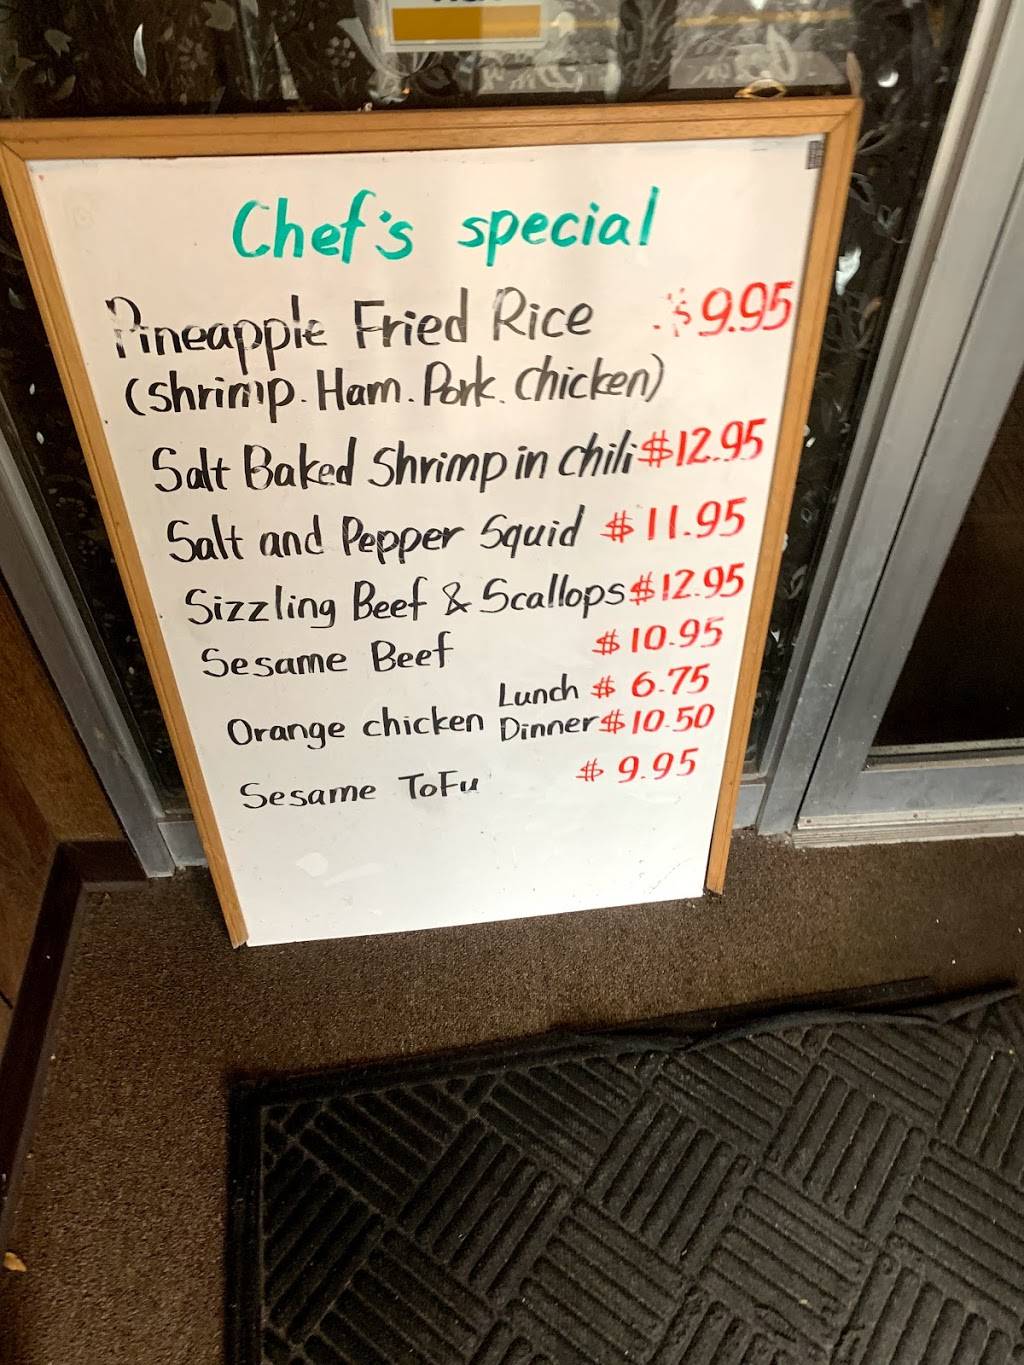 Chef's special
Pineapple Fried Rice $9.95
(shrimp. Ham. Pork. chicken)
Salt Baked Shrimp in chili $12.95
Salt and Pepper Squid $11.95
Sizzling Beef & Scallops $12.95
Sesame Beef $10.95
Lunch $6.75
Orange chicken Dinner $10.50
Sesame ToFu $9.95